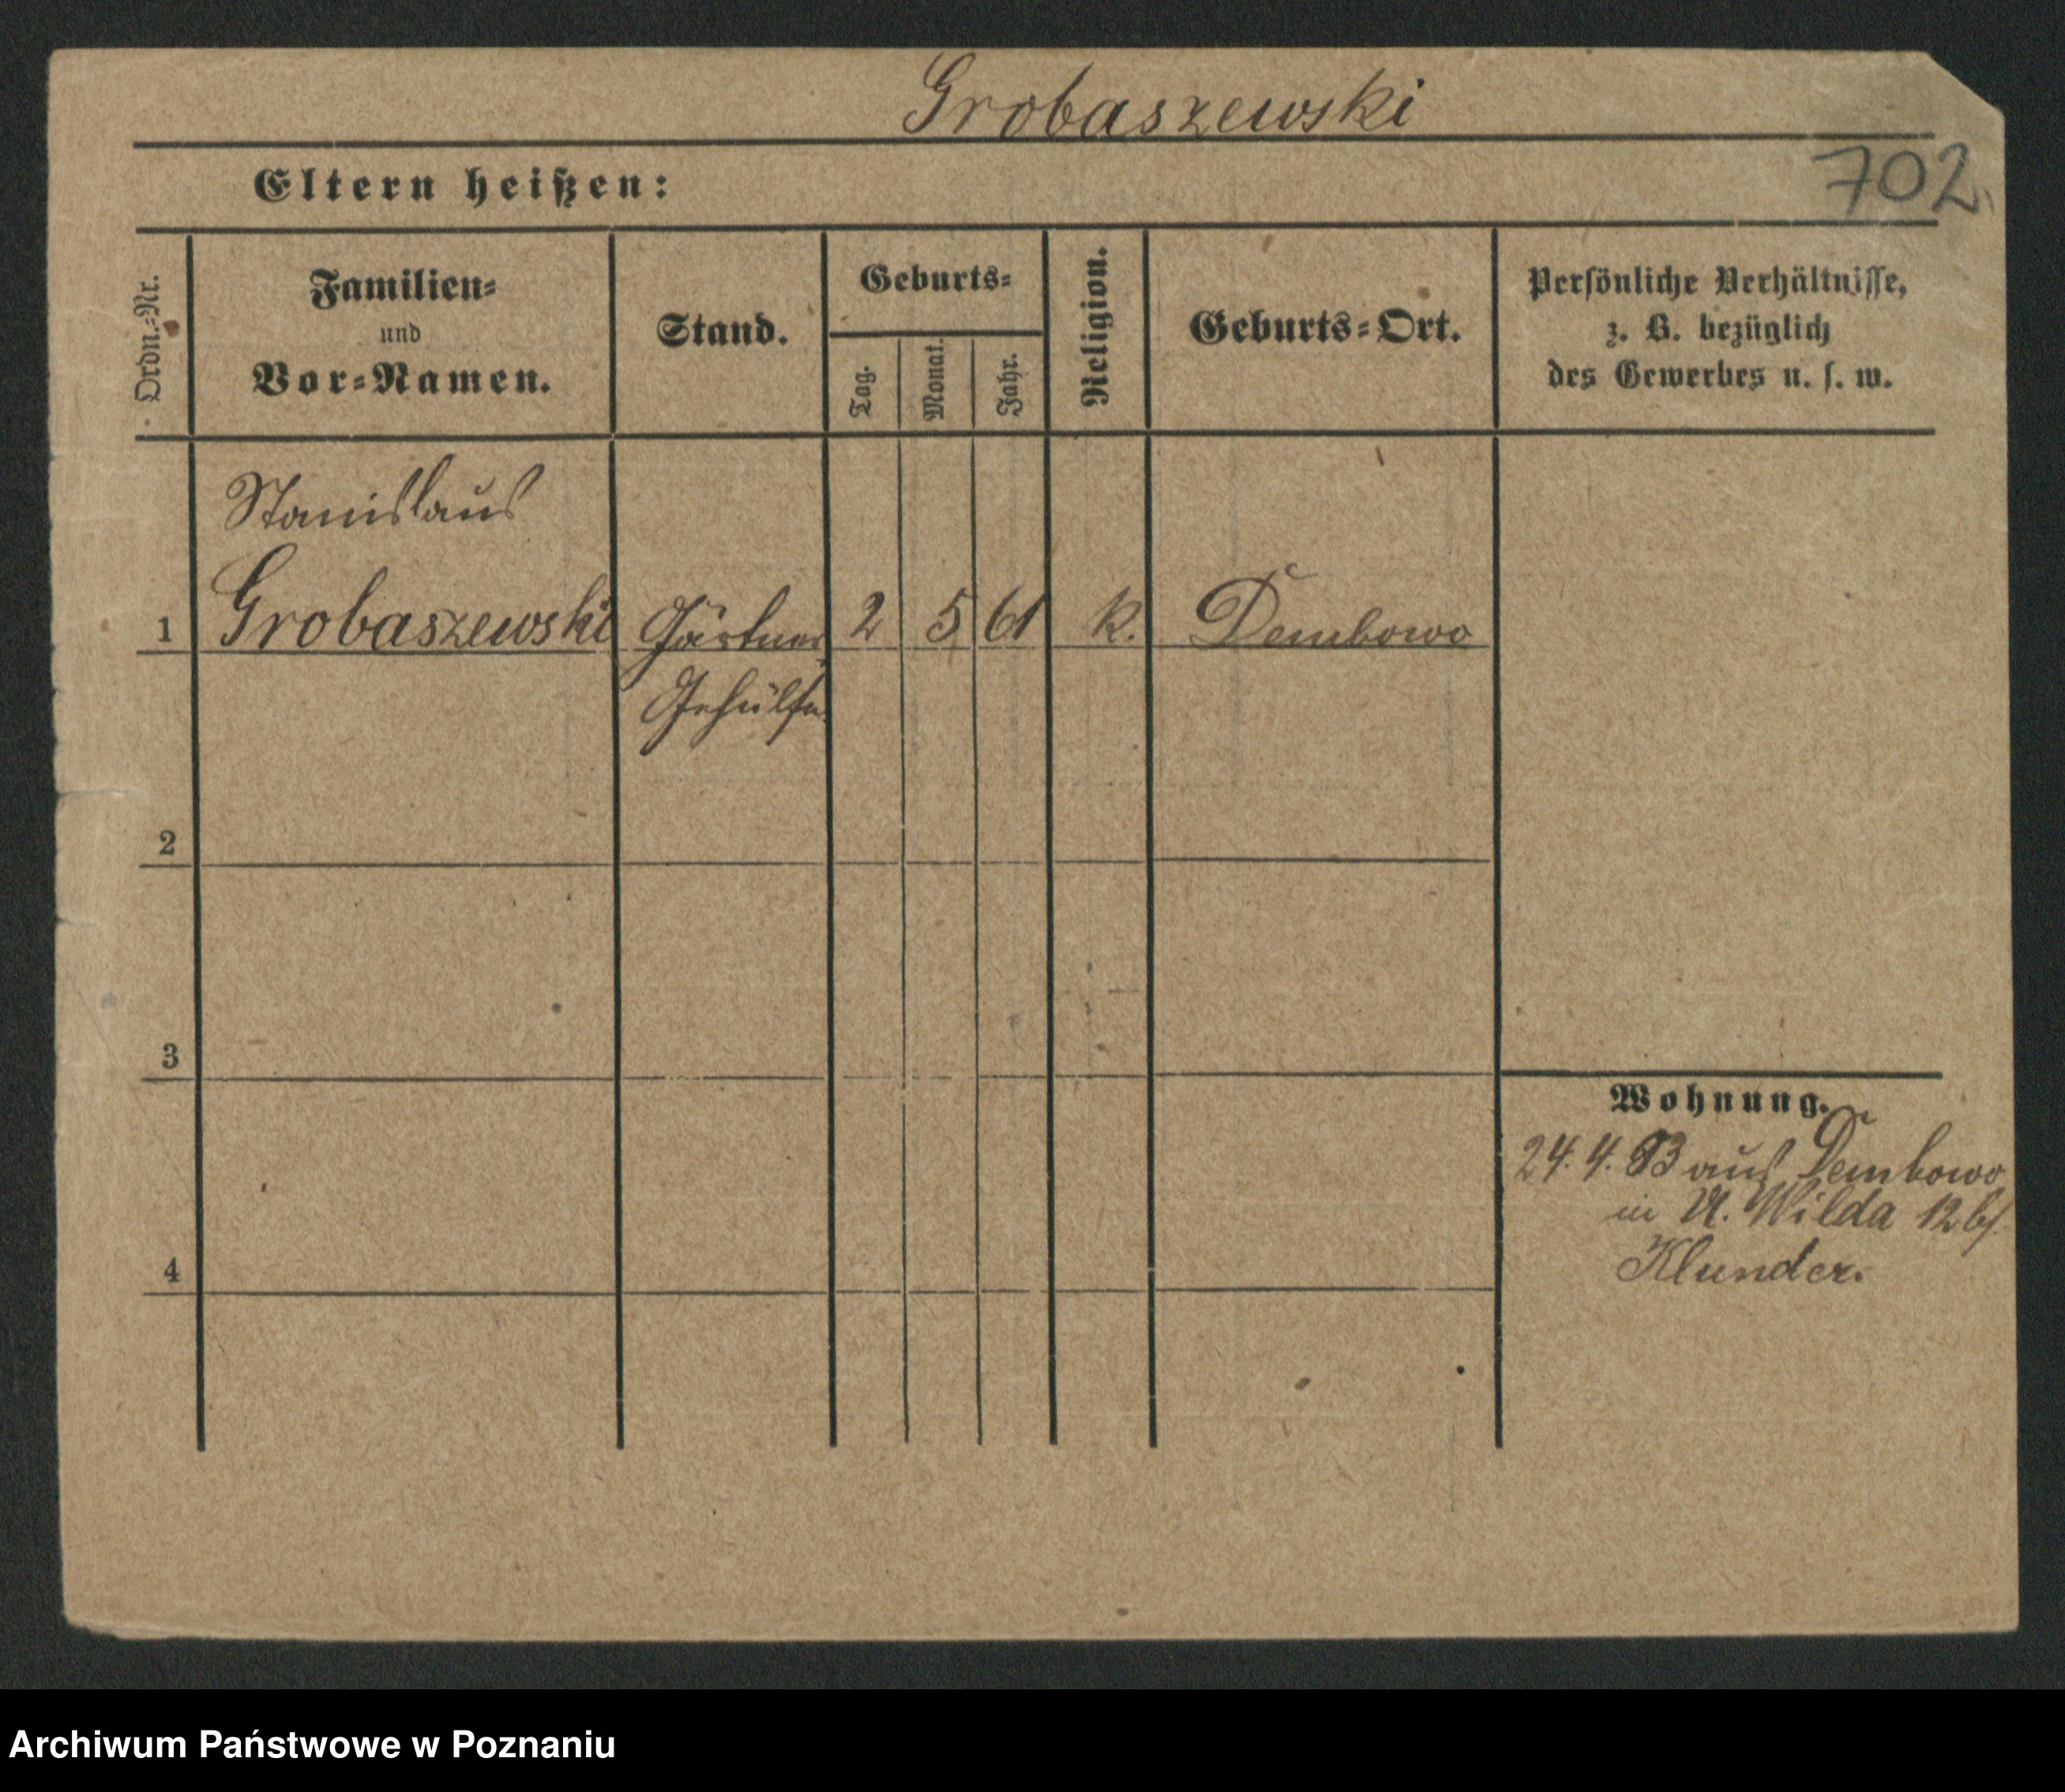 Grobaszewski
702
Eltern heißen:
Ordn.=Nr.
Familien=
und
Vor=Namen.
Stand.
Geburts=
Tag.
Monat.
Jahr.
Religion.
Geburts=Ort.
Persönliche Verhältnisse,
z. B. bezüglich
des Gewerbes u. s. w.
Stanislaus
1 Grobaszewski Gärtner 2 5 61 k. Dembowo
Gehülfe
2
3
Wohnung.
24. 4. 83 aus Dembowo
in U. Wilda 12 b/.
Klunder.
4
Archiwum Państwowe w Poznaniu